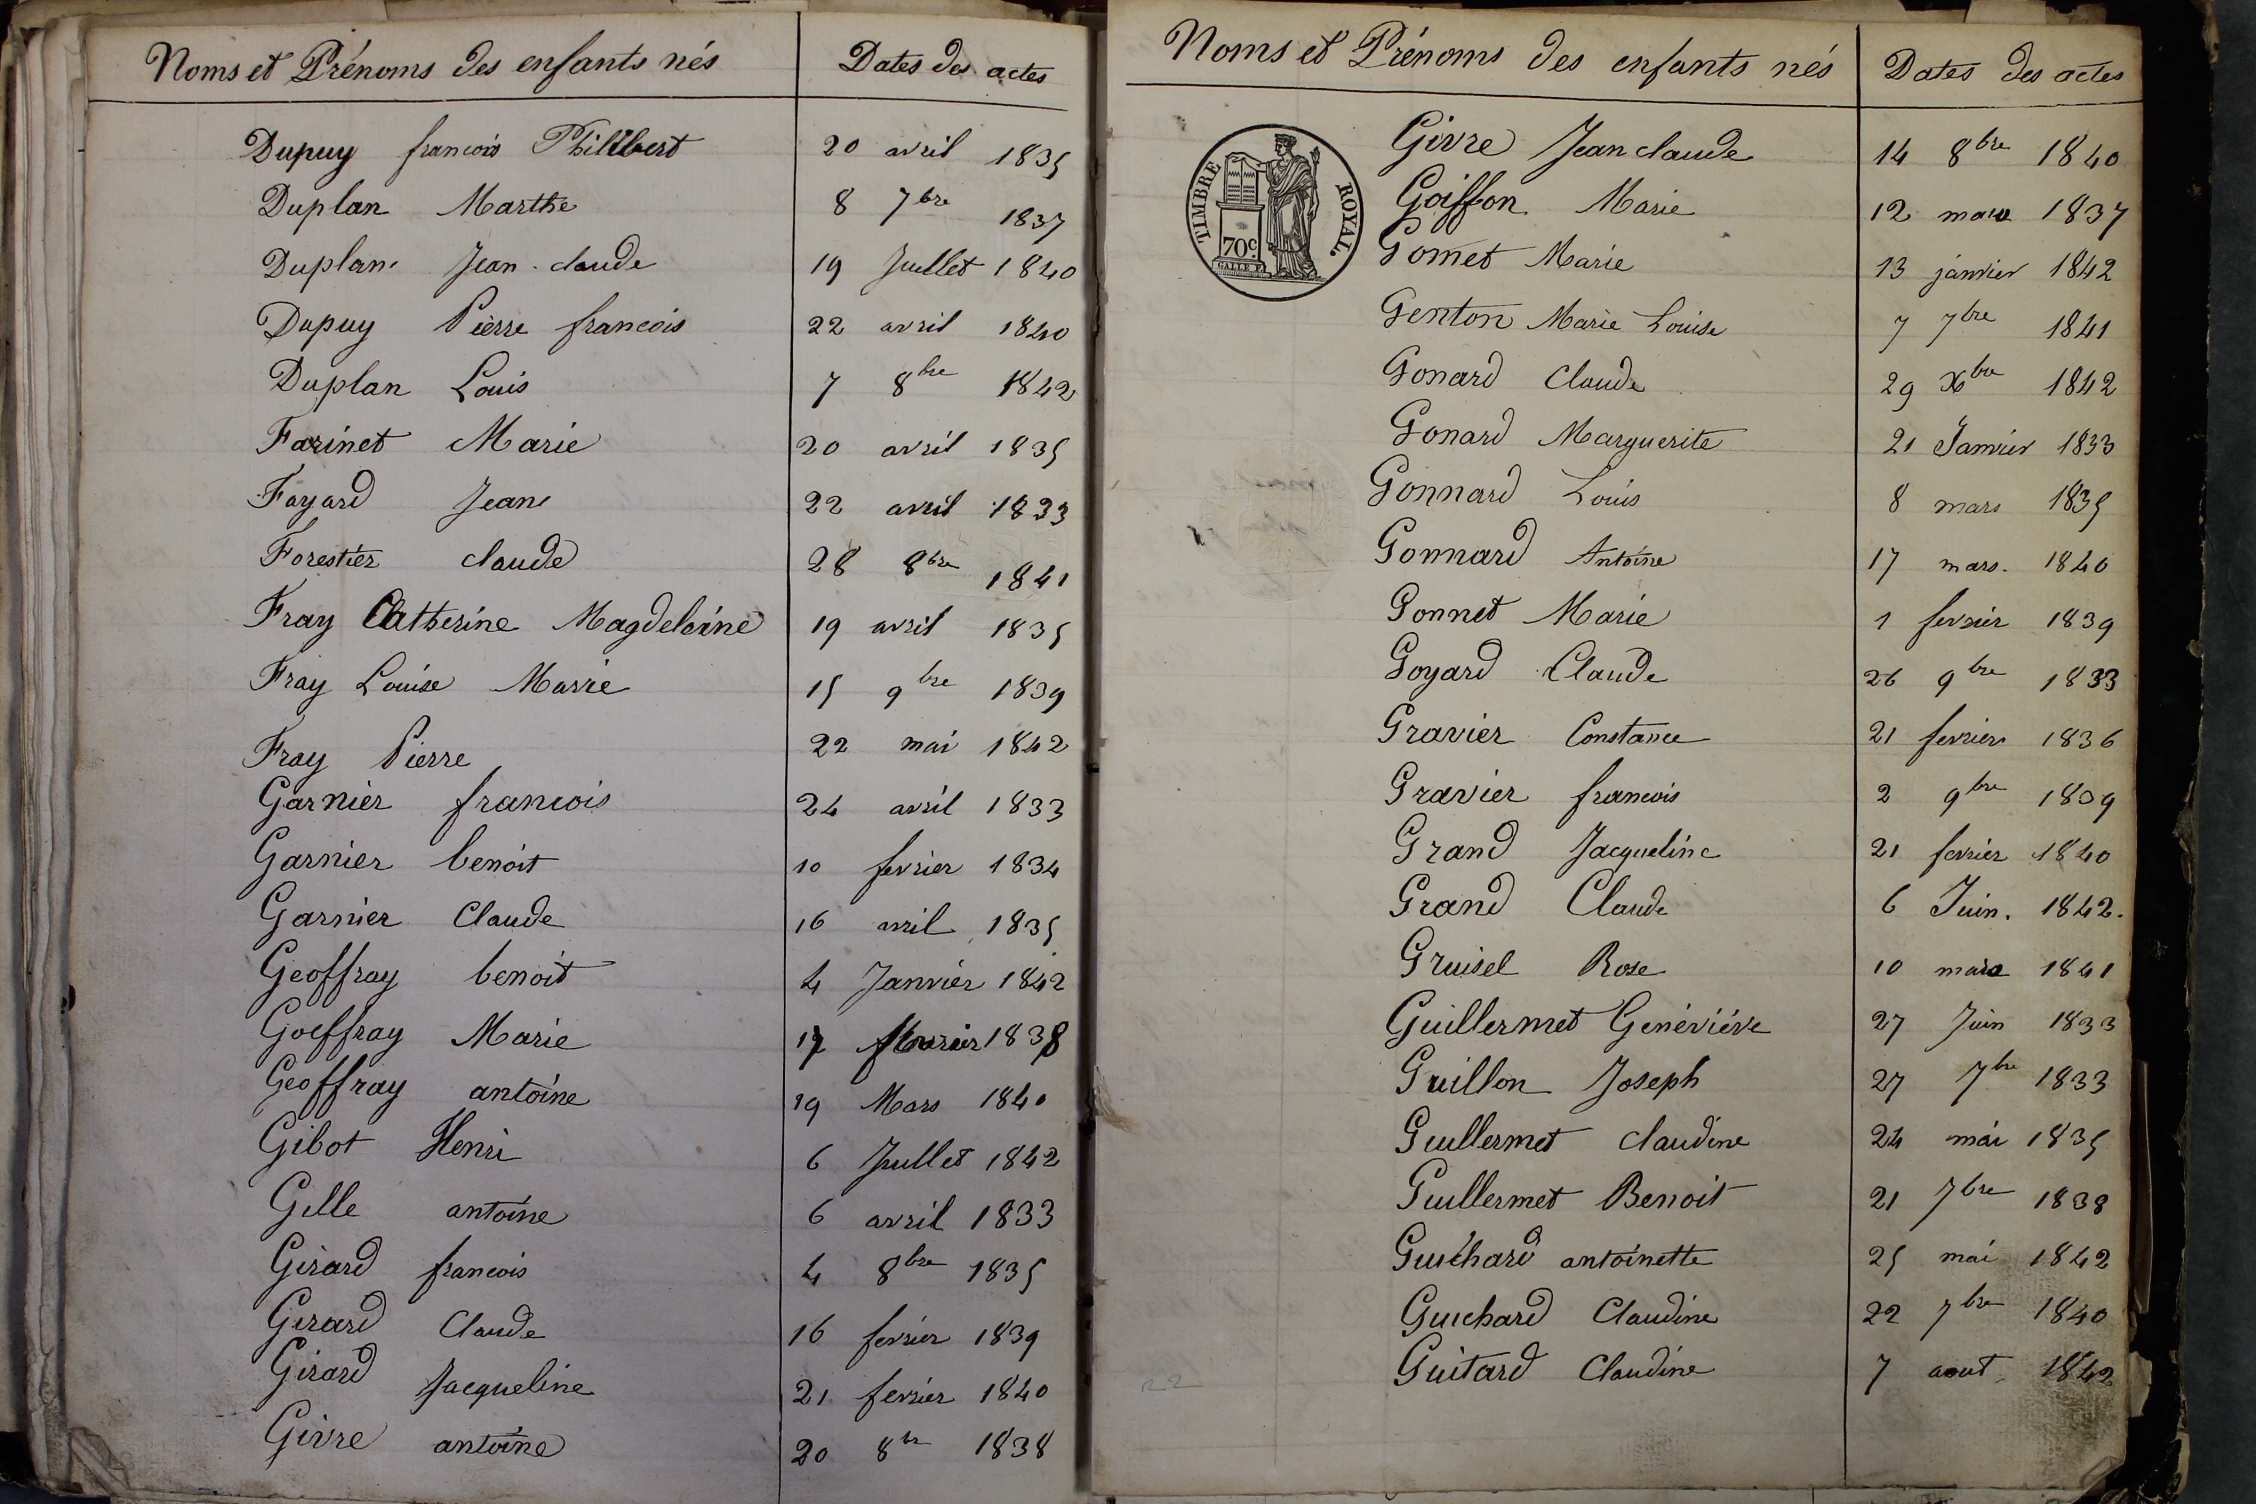 Noms et Prénoms des enfants nés Dates des actes
Dupuy francois Philibert 20 avril 1835
Duplan Marthe 8 7bre 1837
Duplan Jean claude 19 Juillet 1840
Dupuy Pierre francois 22 avril 1840
Duplan Louis 7 8bre 1842
Farinet Marie 20 avril 1835
Fayard Jean 22 avril 1833
Forestier claude 28 8bre 1841
Fray Catherine Magdeleine 19 avril 1835
Fray Louise Marie 15 9bre 1839
Fray Pierre 22 mai 1842
Garnier francois 24 avril 1833
Garnier benoit 10 fevrier 1834
Garnier Claude 16 avril 1835
Geoffray benoit 4 Janvier 1842
Goeffray Marie 17 fevrier 1838
Geoffray antoine 19 Mars 1840
Gibot Henri 6 Juillet 1842
Gille antoine 6 avril 1833
Girard francois 4 8bre 1835
Girard Claude 16 fevrier 1839
Girard Jacqueline 21 fevrier 1840
Givre antoine 20 8bre 1838
Noms et Prénoms des enfants nés Dates des actes
TIMBRE ROYAL.
70c
Givre Jean claude 14 8bre 1840
Goiffon Marie 12 mars 1837
Gomet Marie 13 janvier 1842
Genton Marie Louise 7 7bre 1841
Gonard Claude 29 Xbre 1842
Gonard Marguerite 21 Janvier 1833
Gonnard Louis 8 mars 1835
Gonnard Antoine 17 mars. 1840
Gonnet Marie 1 fevrier 1839
Goyard Claude 26 9bre 1833
Gravier Constance 21 fevrier 1836
Gravier francois 2 9bre 1839
Grand Jacqueline 21 fevrier 1840
Grand Claude 6 Juin. 1842.
Gruisel Rose 10 mars 1841
Guillermet Genéviéve 27 Juin 1833
Guillon Joseph 27 7bre 1833
Guillermet Claudine 24 mai 1835
Guillermet Benoit 21 7bre 1838
Guichard antoinette 25 mai 1842
Guichard Claudine 22 7bre 1840
Guitard Claudine 7 aout 1842